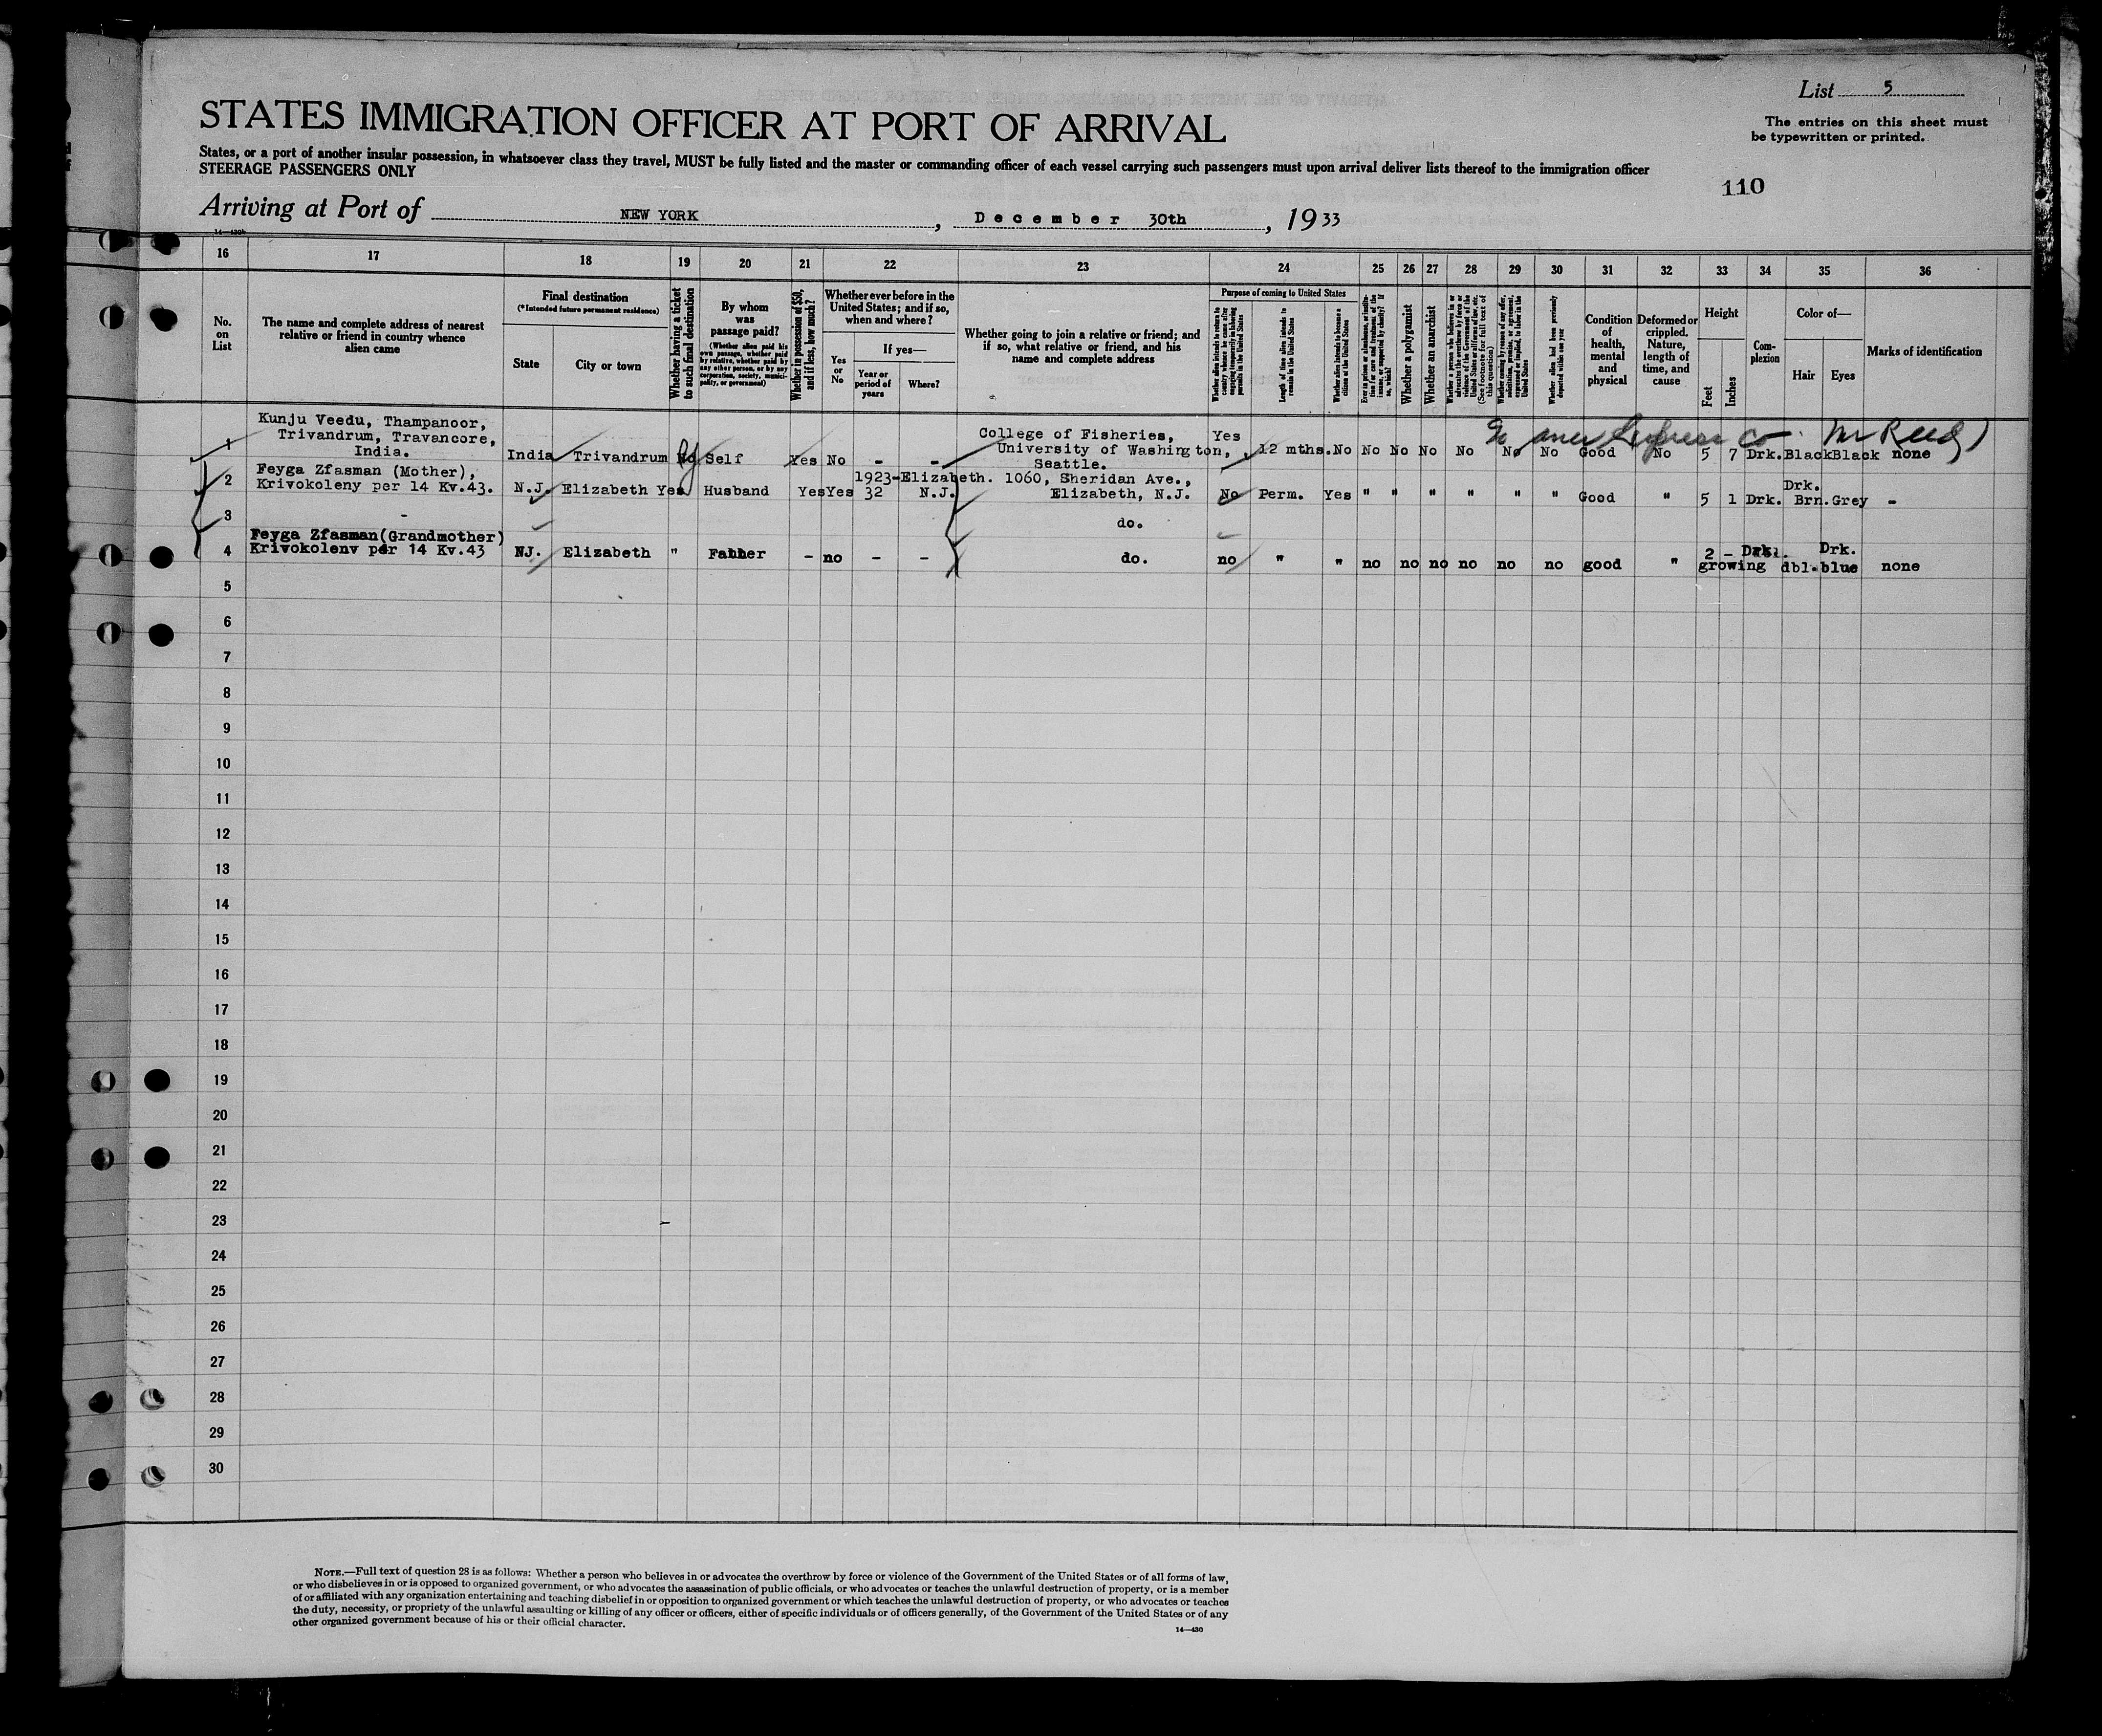 List 5
STATES IMMIGRATION OFFICER AT PORT OF ARRIVAL
The entries on this sheet must
be typewritten or printed.
States, or a port of another insular possession, in whatsoever class they travel, MUST be fully listed and the master or commanding officer of each vessel carrying such passengers must upon arrival deliver lists thereof to the immigration officer
STEERAGE PASSENGERS ONLY
110
Arriving at Port of NEW YORK, December 30th, 1933
14—430b
16 17 18 19 20 21 22 23 24 25 26 27 28 29 30 31 32 33 34 35 36
No. on List
The name and complete address of nearest relative or friend in country whence alien came
Final destination
(*Intended future permanent residence)
State
City or town
Whether having a ticket to such final destination
By whom was passage paid?
(Whether alien paid his own passage, whether paid by relative, whether paid by any other person, or by any corporation, society, municipality, or government)
Whether in possession of $50, and if less, how much?
Whether ever before in the United States; and if so, when and where?
Yes or No
If yes—
Year or period of years
Where?
Whether going to join a relative or friend; and if so, what relative or friend, and his name and complete address
Purpose of coming to United States
Whether alien intends to return to country whence he came after engaging temporarily in laboring pursuits in the United States
Length of time alien intends to remain in the United States
Whether alien intends to become a citizen of the United States
Ever in prison or almshouse, or institution for care and treatment of the insane, or supported by charity? If so, which?
Whether a polygamist
Whether an anarchist
Whether a person who believes in or advocates the overthrow by force or violence of the Government of the United States or all forms of law, etc. (See footnote for full text of this question)
Whether coming by reason of any offer, solicitation, promise, or agreement, expressed or implied, to labor in the United States
Whether alien had been previously deported within one year
Condition of health, mental and physical
Deformed or crippled. Nature, length of time, and cause
Height
Feet
Inches
Complexion
Color of—
Hair
Eyes
Marks of identification
Co. Mr Reed)
1 Kunju Veedu, Thampanoor,
Trivandrum, Travancore,
India. India Trivandrum No Self Yes No - - College of Fisheries,
University of Washington,
Seattle. Yes 12 mths. No No No No No No No Good No 5 7 Drk. Black Black none
2 Feyga Zfasman (Mother),
Krivokoleny per 14 Kv.43. N.J. Elizabeth Yes Husband Yes Yes 1923-32 Elizabeth. N.J. 1060, Sheridan Ave.,
Elizabeth, N.J. No Perm. Yes " " " " " " Good " 5 1 Drk. Drk. Brn. Grey -
3 - do.
4 Feyga Zfasman(Grandmother)
Krivokoleny per 14 Kv.43 NJ. Elizabeth " Father - no - - do. no " " no no no no no no good " 2 - growing Drk. dbl. Drk. blue none
5
6
7
8
9
10
11
12
13
14
15
16
17
18
19
20
21
22
23
24
25
26
27
28
29
30
NOTE.—Full text of question 28 is as follows: Whether a person who believes in or advocates the overthrow by force or violence of the Government of the United States or of all forms of law,
or who disbelieves in or is opposed to organized government, or who advocates the assassination of public officials, or who advocates or teaches the unlawful destruction of property, or is a member
of or affiliated with any organization entertaining and teaching disbelief in or opposition to organized government or which teaches the unlawful destruction of property, or who advocates or teaches
the duty, necessity, or propriety of the unlawful assaulting or killing of any officer or officers, either of specific individuals or of officers generally, of the Government of the United States or of any
other organized government because of his or their official character.
14—430